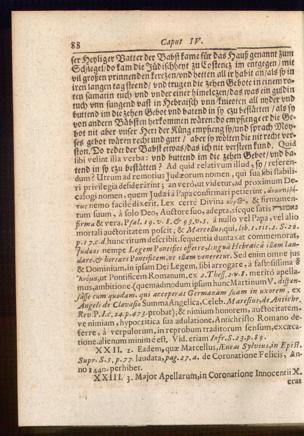 88 Caput IV.
ser Heyliger Vatter der Babst kame für das Hauß genant zum
Schlegel/ do kam die Jüdischheyt zu Costentz im entgegen/ mit
vil grossen prinnenden kertzen/ vnd hetten all ir habit an/ als sy in
iren langen tag steend/ vnd trugen die zehen Gebote in einem ro-
ten samatin tuch vnd vnder einer himeletzen/ das was ein guldin
tuch vnn sungend vast in Hebraisch vnn knieoten all nyder vnd
buttend im die zehen Gebot vnd batend in sy tzu bestätten/ als sy
von andern Bäbsten herkommen wären: do empfieng er die Ge-
bot nit aber vnser Herr der Küng empfieng sy/ vnd sprach Moy-
ses gebot wären recht vnd gut/ aber sy wolten die nit recht ver-
ston. Do redet der Babst etwas/ das ich nit verston kund. Quid
sibi velint illa verba: vnd buttend im die zehen Gebot/ vnd ba-
tend in sy tzu bestätten? Ad quid relativum illud, sy/ referen-
dum? Utrum ad nomotius Judæorum nomen, qui sua sibi stabili-
ri privilegia desiderint; an verò, ut videtur, ad proximum De-
calogi nomen, quem Judæi à Papa confirmari peterent,
nemo facile dixerit. Lex certe Divina & firmamen-
tum suum, à solo Deo, Auctore suo, adepta, sicque satis
firma & vera. Psal. 19. v. 8. & 93. v. 5. à nullo vel Papa, vel alio
mortali auctoritatem poscit; & Marcellus, qui, lib. 1. tit. 2. S. 26.
p. 17. c. d. hunc ritum describit, sequentia duntaxat commemorat,
Judæos nempe Legem Pontifici offerre, lingua Hebraica illam lau-
dare, & hortari Pontificem, ut illam veneretur. Sed enim omne jus
& Dominium, in ipsam Dei Legem, sibi arrogare, a fastosissima
& Pontificem Romanum, ex 2. Thess. 2. v. 8. meritò apella-
mus, ambitione, (quemadmodum ipsum hunc Martinum V. dispen-
sasse cum quodam, qui acceperat Germanam suam in uxorem, ex
Angeli de Clavasio Summa Angelica, Celeb. Maresius, de Antichr.
Rev. P. I. c. 24. p. 473. probat;) & nimium honorem, auctoritatem,
ve nimiam, hypocritica sua adulatione, Antichristo Romano de-
ferre, à verpulorum, in reprobum traditorum sensum, excæca-
tione, alienum minimè est. Vid. etiam Infr. S. 23. p. 89.
XXII. 2. Eadem, quæ Marcellus, Æneas Sylvius, in Epist.
Supr. S. 5. p. 77. laudata, pag. 27. a. de Coronatione Felicis, An-
no 1440. perhibet.
XXIII. 3. Major Apellarum, in Coronatione Innocentii X.
erat